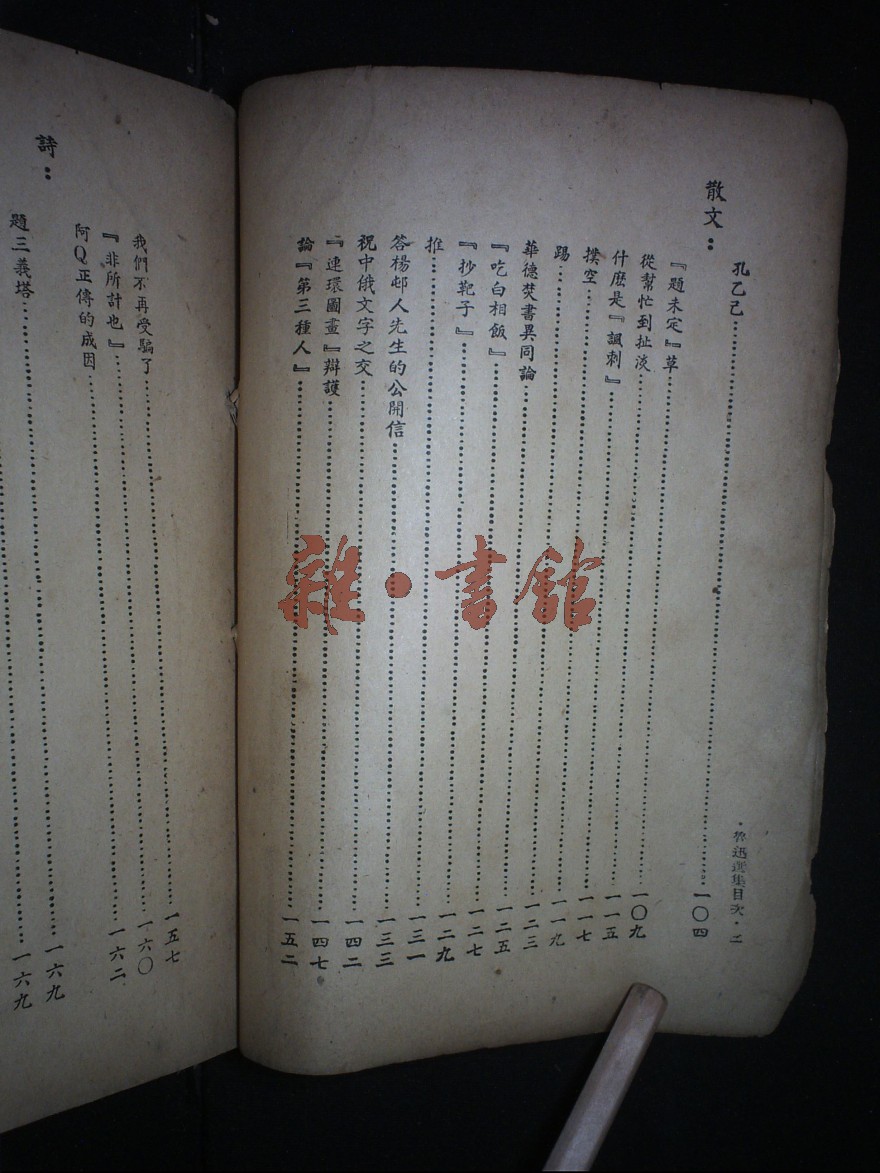 ・魯迅選集目次・二
孔乙己……一〇四
散文：
『題未定』草……一〇九
從幫忙到扯淡……一一五
什麽是『諷刺』……一一七
撲空……一一九
踢……一二三
華德焚書異同論……一二五
『吃白相飯』……一二七
『抄靶子』……一二九
推……一三一
答楊邨人先生的公開信……一三三
祝中俄文字之交……一四二
『連環圖畫』辯護……一四七
論『第三種人』……一五二
我們不再受騙了……一五七
『非所計也』……一六〇
阿Q正傳的成因……一六二
詩：
題三義塔……一六九
一六九
雜・書館